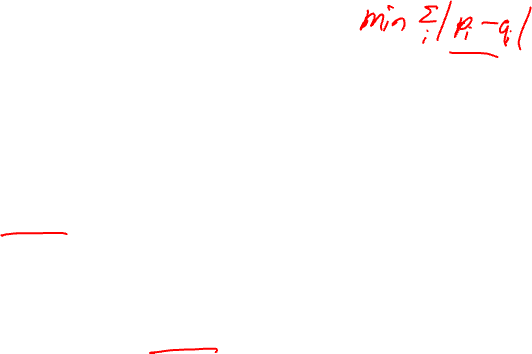 min Σ_i |p_i - q_i|